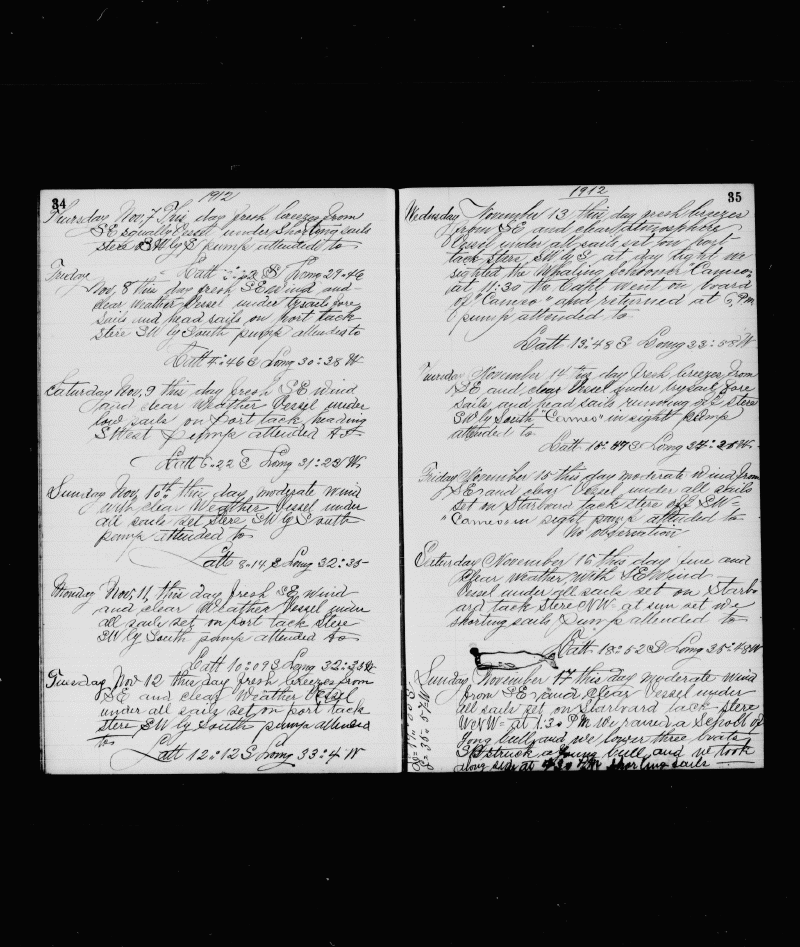 34
1912
Thursday Nov, 7 This day fresh breezes from
SE squally Vessel under Shorting sails
stere SW by S pump attended to
Latt S Long 29=46
Friday
Nov, 8 this day fresh SE wind and
clear weather Vessel under trysail fore
sails and head sails on port tack
stere SW by South pump attended to
Latt 4=46 S Long 30=38 W
Saturday Nov, 9 this day fresh SE wind
and clear Weather Vessel under
low sails on Port tack heading
SWest Pump attended to
Latt 6=22 S Long 31=23 W
Sunday Nov, 10th this day moderate wind
with clear Weather Vessel under
all sails set stere SW by South
pump attended to
Latt 8=14 S Long 32=35
Monday Nov, 11, this day fresh SE wind
and clear Weather Vessel under
all sails set on Port tack stere
SW by South pump attended to
Latt 10=09 S Long 32=35 W
Tuesday Nov 12 this day fresh breezes from
SE and clear Weather Vessel
under all sails set on port tack
stere SW by South pump attended
to
Latt 12=12 S Long 33=4 W
35
1912
Wednesday November 13 this day fresh breezes
from SE and clear atmosphere
Vessel under all sails set on port
tack stere SW by S at day light we
sighted the Whaling Schooner Cameo,
at 11=30 the Capt went on board
of "Cameo" and returned at 6, P.m
pump attended to
Latt 13=48 S Long 33=58 W
November 14 this day fresh breezes from
SE and clear Vessel under trysail, fore
sails and head sails running off stere
SW by South "Cameo" in sight pump
attended to
Latt 15=47 S Long 34=28 W
Friday November 15 this day moderate wind from
SE and clear Vessel under all sails
set on Starbord tack stere SW=
"Cameo in sight pump attended to
No observation
Saturday November 16 this day fine and
clear weather with SE Wind
Vessel under all sails set on Starbo
ard tack stere NW= at sun set we
shorting sails Pump attended to
Latt 18=52 S Long 35=48 W
Sunday November 17 this day moderate wind
from SE, and clear Vessel under
all sails set on Starbord tack stere
WNW= at 1.30 P M We raised a School of
yong bull and we lower three boats
struck a young bull and we took
along side at 4.30 P M shorting sails
Lo=35=57 W